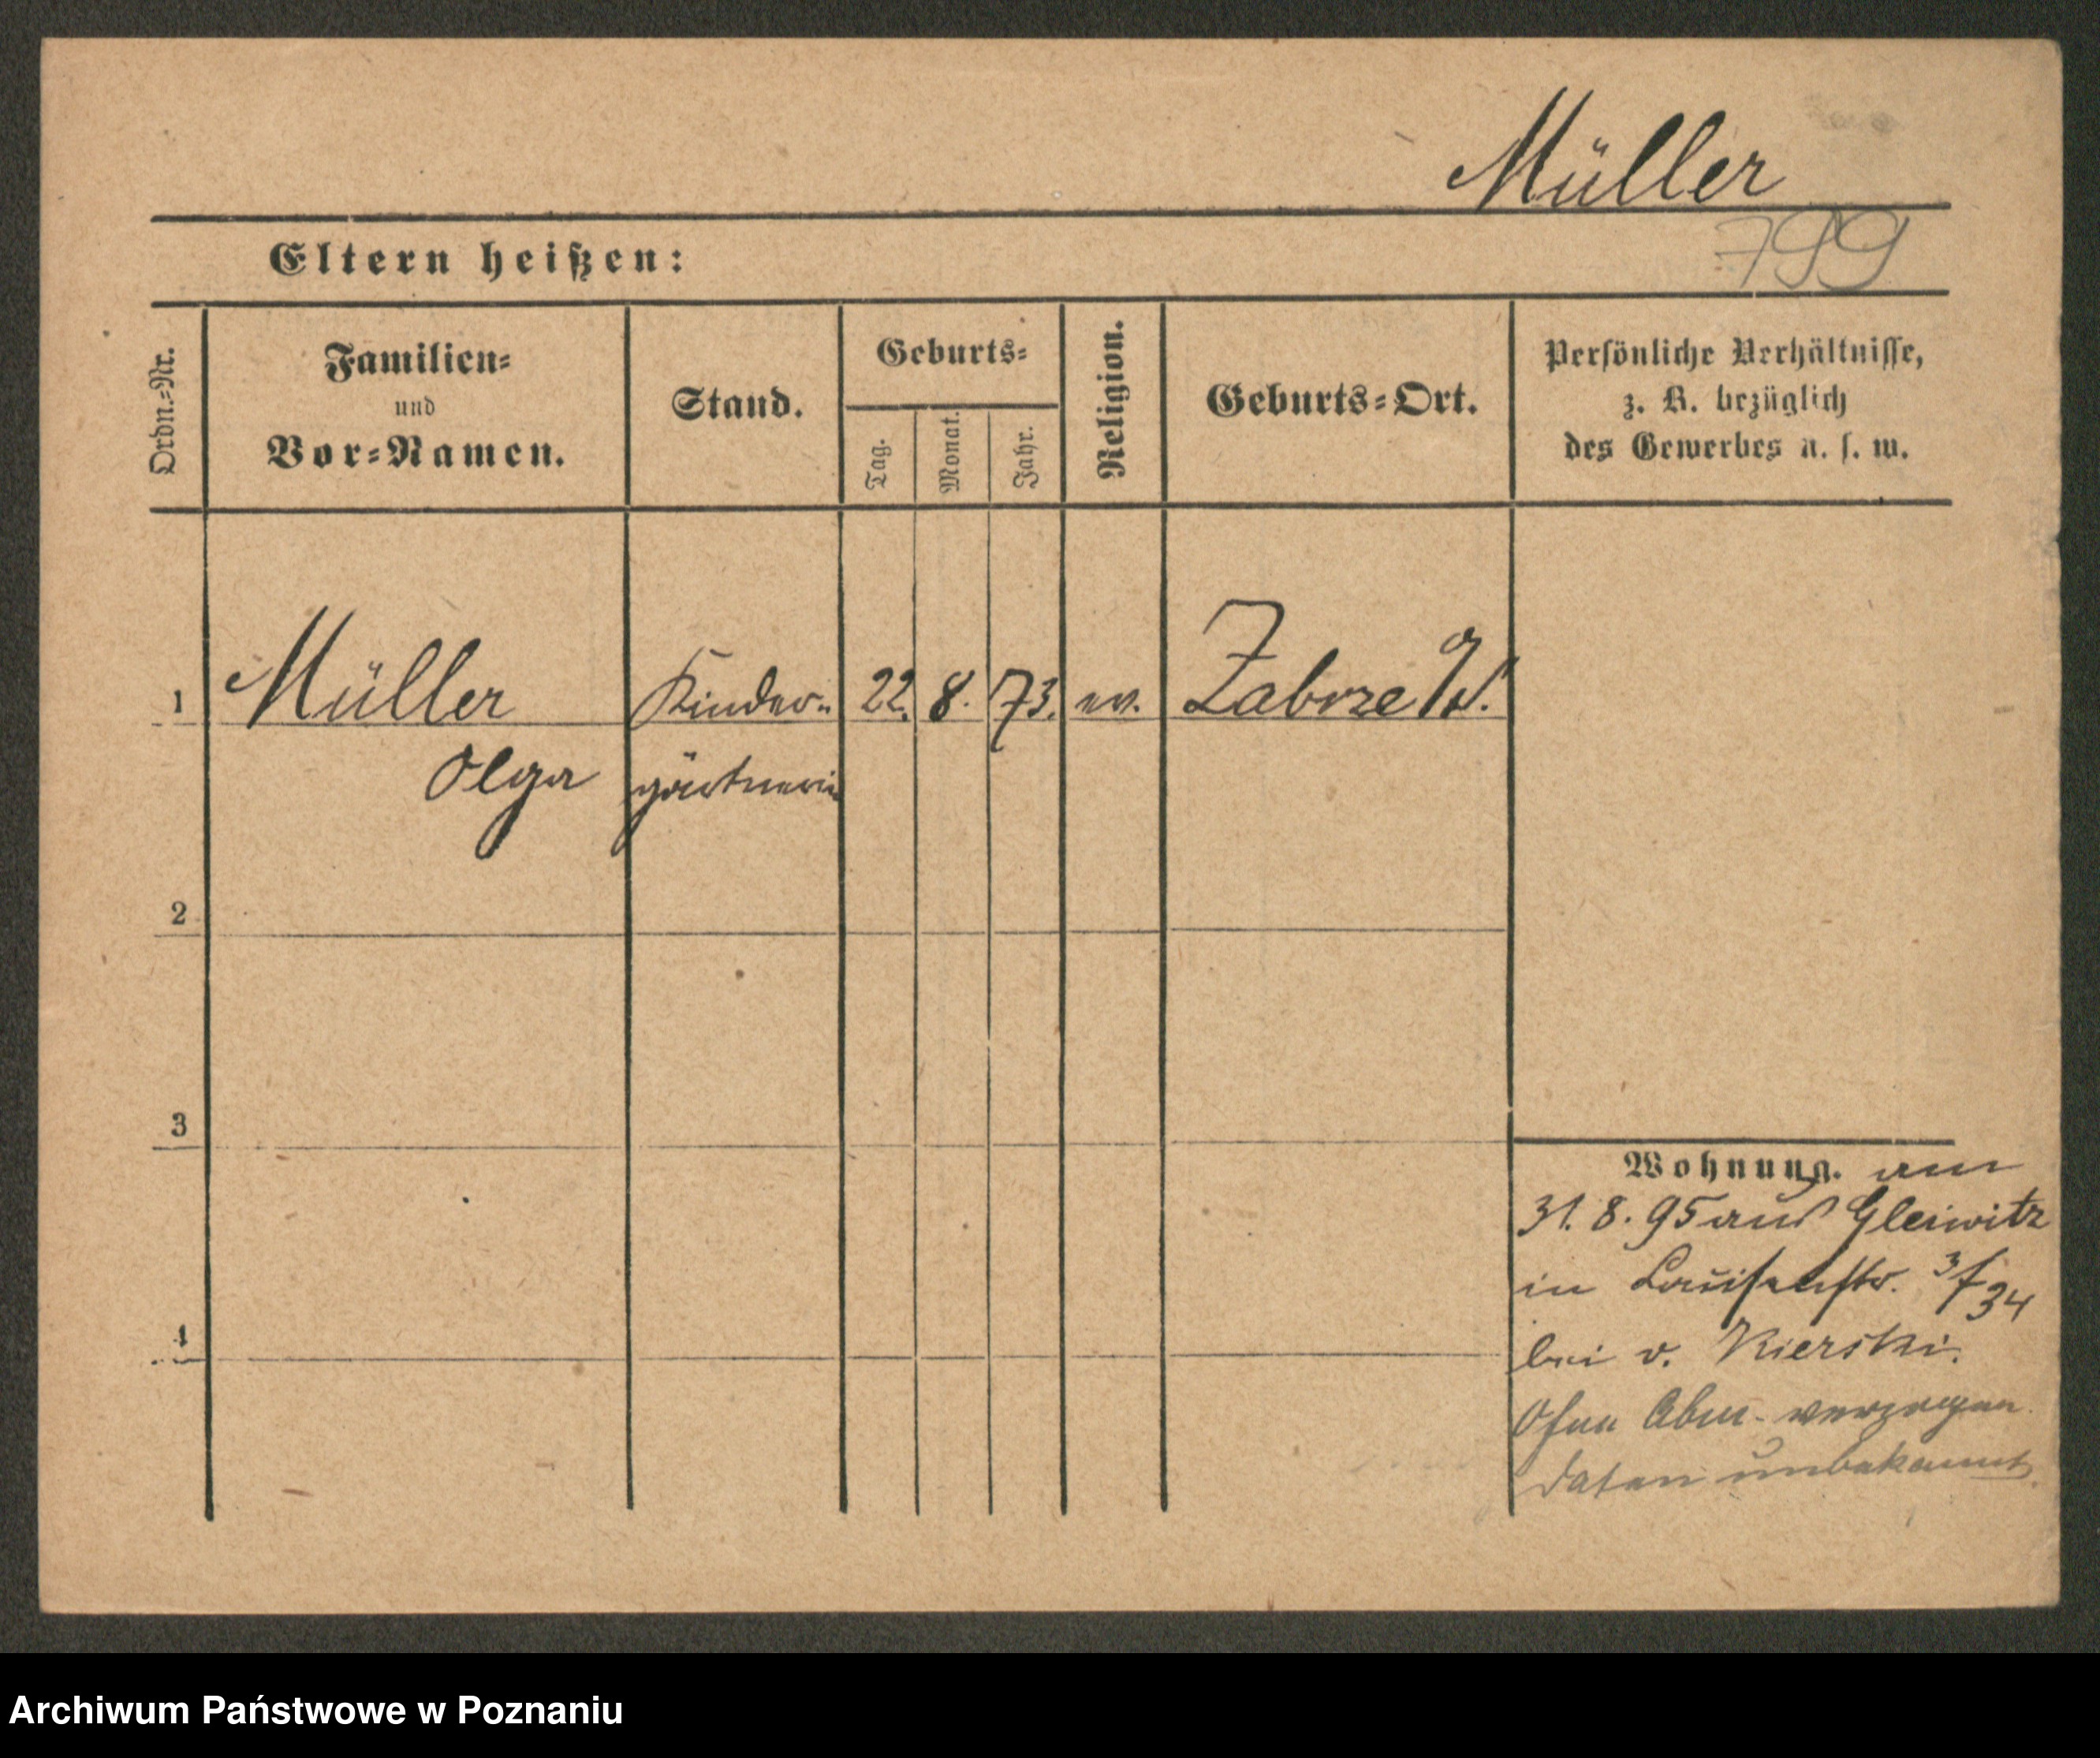 Müller
799
Eltern heißen:
Ordn.-Nr.
Familien-
und
Vor-Namen.
Stand.
Geburts-
Tag.
Monat.
Jahr.
Religion.
Geburts-Ort.
Persönliche Verhältnisse,
z. B. bezüglich
des Gewerbes u. s. w.
1 Müller Kinder- 22. 8. 73. ev. Zabrze
Olga gärtnerin
2
3
4
Wohnung. am
31. 8. 95 aus Gleiwitz
in Louisenstr. 3/34
bei v. Kierski.
Ohne Abm. verzogen.
Daten unbekannt.
Archiwum Państwowe w Poznaniu